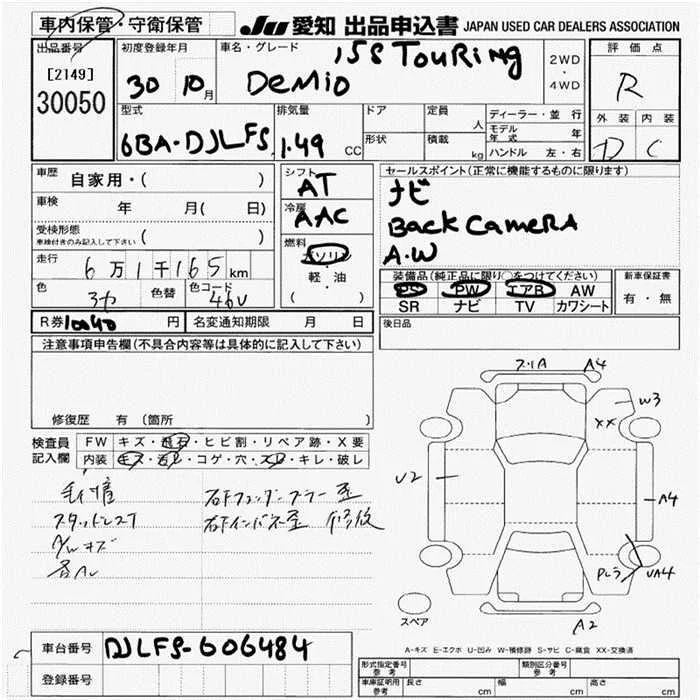 車内保管・守衛保管
JU 愛知 出品申込書 JAPAN USED CAR DEALERS ASSOCIATION
出品番号
[2149]
30050
初度登録年月
30 10月
車名・グレード
15S TOURING
DEMIO
2WD
・
4WD
評価点
R
外装 内装
D C
型式
6BA-DJLFS
排気量
1.49 CC
ドア
形状
定員 人
積載 kg
ディーラー・並行
モデル年式 年
ハンドル 左・右
車歴 自家用・( )
車検 年 月( 日)
受検形態
車検付きのみ記入して下さい ( )
走行 6万1千165km
色
色替
色コード 46V
シフト
AT
冷房
AAC
燃料
ガソリン
軽・油
( )
セールスポイント(正常に機能するものに限ります)
ナビ
Back CAMERA
A.W
装備品(純正品に限り○をつけてください)
PS PW エアB AW
SR ナビ TV カワシート
新車保証書
有・無
R券 10040 円 名変通知期限 月 日
後日品
注意事項申告欄(不具合内容等は具体的に記入して下さい)
修復歴 有 (箇所 )
検査員記入欄
FW キズ・飛石・ヒビ割・リペア跡・X要
内装 キズ・汚レ・コゲ・穴・スレ・キレ・破レ
スタッドレス
A/Wキズ
右Fフェンダーブラー歪
右Fインパネ歪 修復
A4
W3
XX
U2
A4
UA4
A2
スペア
A-キズ E-エクボ U-凹み W-補修跡 S-サビ C-腐食 XX-交換済
車台番号 DJLFS-606484
登録番号
形式指定番号 参考
類別区分番号 参考
車庫証明用 参考 長さ cm 幅 cm 高さ cm